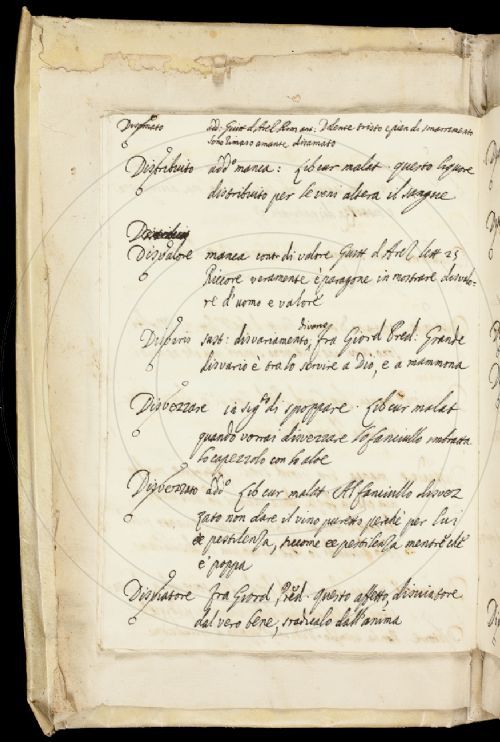 Disamato add: Guitt d'Arel Rim ant: Dolente tristo e pien di smarramento
Sono rimaso amante disamato
Distribuito addº manca: Lib cur malat questo liquore
distribuito per le veni altera il sangue
Disvalore manca contr di valore Guitt d'Arel lett 25
Riccore veramente è paragone in mostrare disvalo-
re d'uomo e valore
Disvario sust: disvariamento, divario
fra Giord Pred: Grande
disvario è tra lo servire a Dio, e a mammona
Disvezzare in sigº di spoppare. Lib cur malat
quando vorrai divezzare lo fanciullo imbratta
lo capezzolo con lo aloe
Disvezzato addº Lib cur malat Al fanciullo disvez
zato non dare il vino puretto perchè per lui
è pestilenza, siccome è pestilenza mentre che
è poppa
Disviatore fra Giord Pred. questo affetto, disviatore
dal vero bene, sradicalo dall'anima